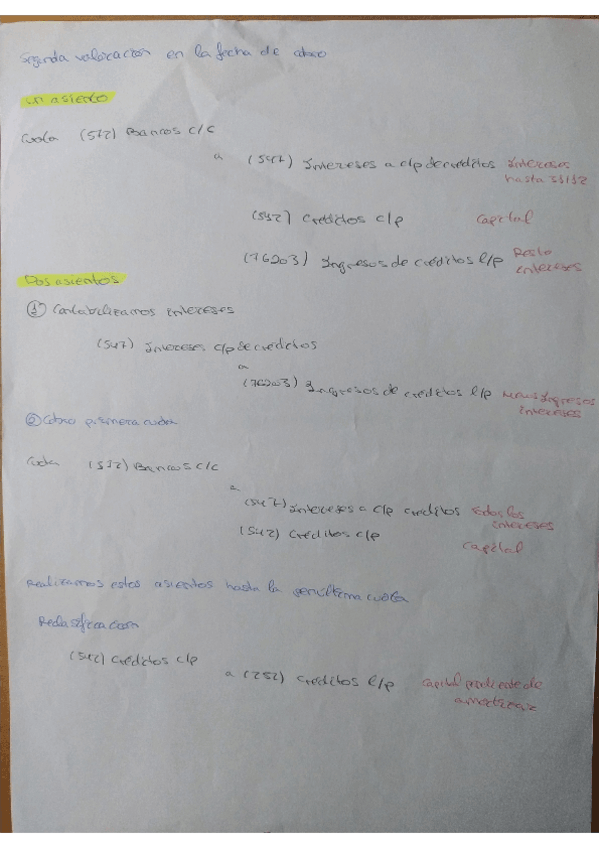 Segunda valoración en la fecha de cobro
un asiento
Cuota (572) Bancos c/c
a (547) Intereses a c/p de créditos Intereses
hasta 31/12
(542) Créditos c/p Capital
(76203) Ingresos de créditos l/p Resto
intereses
Dos asientos
① Contabilizamos intereses
(547) Intereses c/p de créditos
a
(76203) Ingresos de créditos l/p Ingresos
intereses
② Cobro primera cuota
Cuota (572) Bancos c/c
a
(547) Intereses a c/p créditos todos los
intereses
(542) Créditos c/p
Capital
Realizamos estos asientos hasta la penúltima cuota
Reclasificación
(542) Créditos c/p
a (252) Créditos l/p Capital pendiente de
amortizar